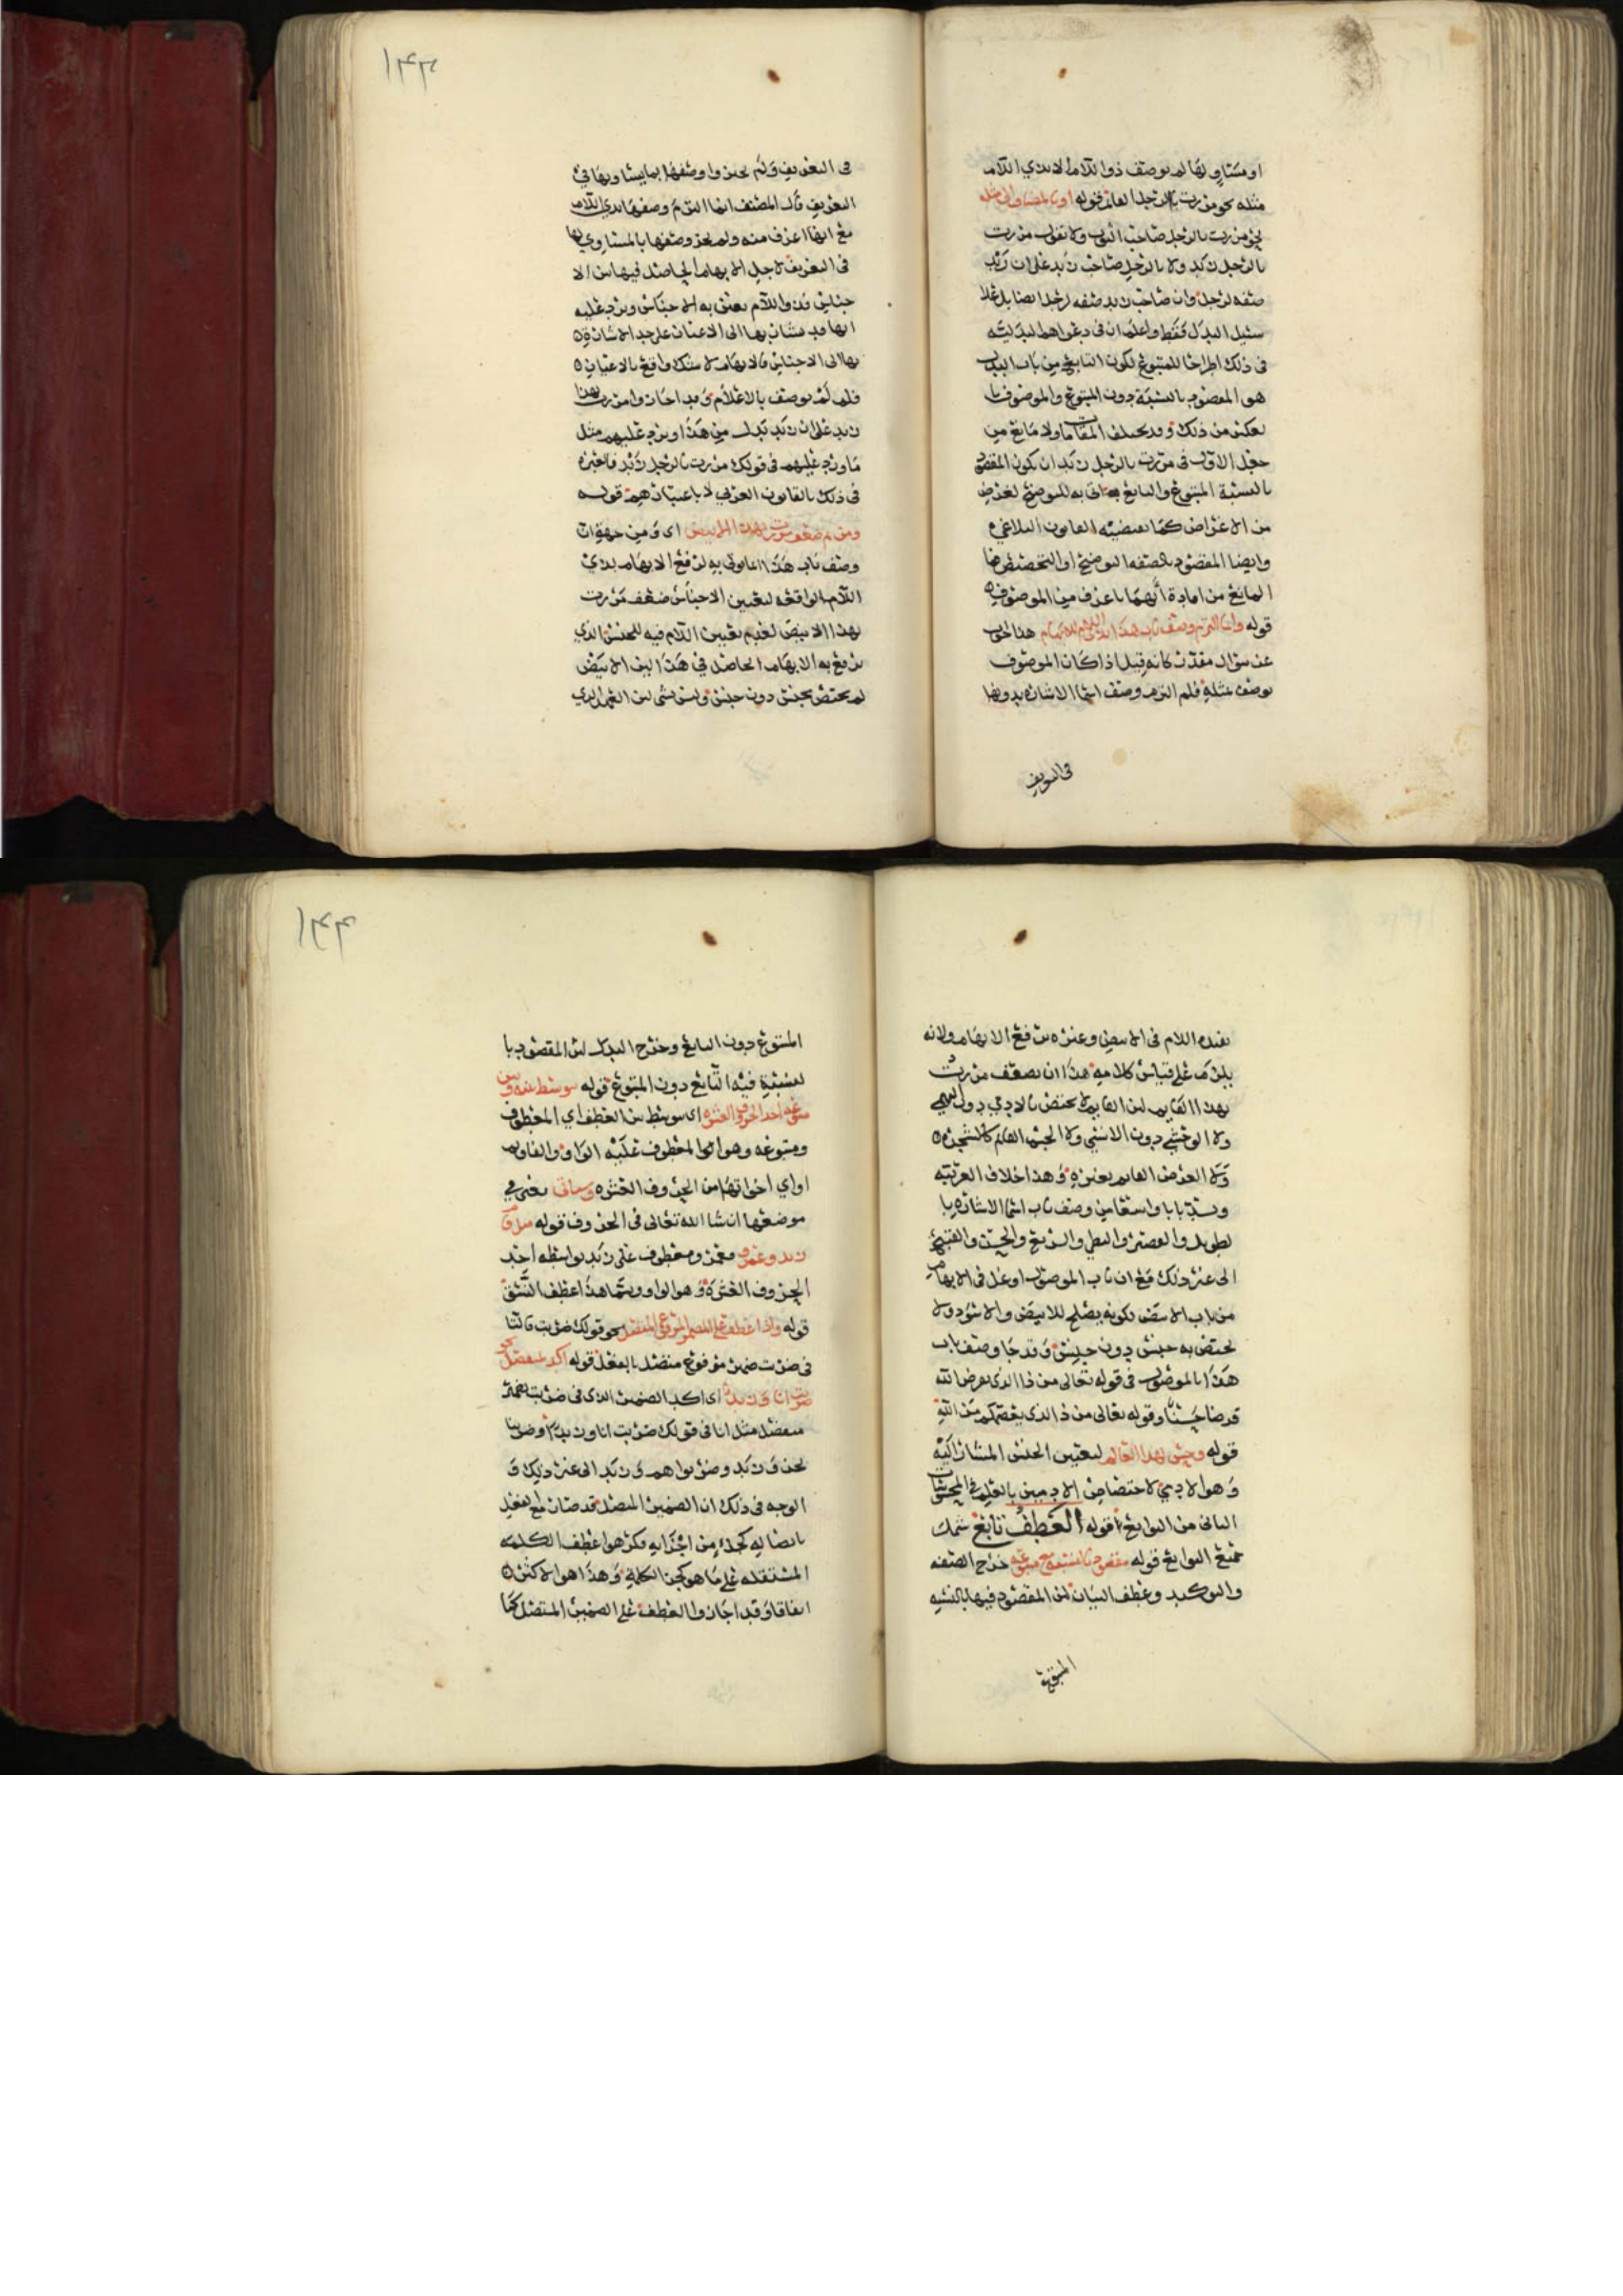 او مساو لها لم يوصف ذو اللام الا بذي اللام
مثله نحو مررت بالرجل العالم قوله او بالمضاف الى مثله
نحو مررت بالرجل صاحب الثوب ولا تقول مررت
بالرجل زيد ولا بالرجل صاحب زيد على ان زيد
صفه لرجل وان صاحب زيد صفه لرجل ايضا بل على
سبيل البدل فقط واعلم ان في دعواهم البدليه
في ذلك اطراحا للمتبوع لكون التابع من باب البدل
هو المقصود بالنسبة دون المتبوع والموصوف
بعكس من ذلك وقد يختلف المقامات ولا مانع من
جعل الاول في مررت بالرجل زيد ان يكون المقصود
بالنسبة المتبوع والتابع اتى به للتوضيح لغرض
من الاغراض كما يقتضيه القانون البلاغي
وايضا المقصود بالصفه التوضيح او التخصيص فما
المانع من افادة أيهما باعرف من الموصوف
قوله وانما التزم وصف باب هذا بذي اللام للابهام هذا جواب
عن سؤال مقدر كانه قيل اذا كان الموصوف
يوصف بمثله فلم التزم وصف اسما الاشاره بدونها
في التعريف
١٤٣
في التعريف ولم يجيزوا وصفها بما يساويها في
التعريف قال المصنف انما التزم وصفها بذي اللام
مع انها اعرف منه ولم يجز وصفها بالمساوي لها
في التعريف لاجل الابهام الحاصل فيها من الا
جناس وذو اللام يعتنى به الاجناس ويرد عليه
انها قد يشار بها الى الاعيان على حد الاشارة
بها الى الاجناس فالابهام لا شك واقع بالاعيان
فلم لم يوصف بالاعلام وقد اجازوا مررت بهذا
زيد على ان زيد بدل من هذا ويرد عليهم مثل
ما ورد عليهم في قولك مررت بالرجل زيد فالعبرة
في ذلك بالقانون العربي لا باعتبارهم قوله
ومن ثم ضعف مررت بهذا الابيض اي ومن جهة ان
وصف باب هذا انما وتي به لرفع الابهام بذي
اللام الواقعه لتعيين الاجناس ضعف مررت
بهذا الابيض لعدم تعيين اللام فيه للجنس الذي
يرفع به الابهام الحاصل في هذا اذ الابيض
لم يختص بجنس دون جنس وليس بشي لان العمل الذي
يفيده اللام في الابيض وغيره رفع الابهام ولانه
يلزم على قياس كلامه هذا ان يضعف مررت
بهذا القايم لان القايم لا يختص بالادمي دون البهيمي
ولا الوحشي دون الانسي ولا الجسم القايم كالشجره
ولا العرض القايم بغيره وهذا خلاف العربيه
ويسد بابا واسعا من وصف باب اسما الاشاره با
لطويل والقصير والبطي والسريع والحسن والقبيح
الى غير ذلك مع ان باب الموصول اوغل في الابهام
من باب الابيض لكونه يصلح للابيض والاسود ولا
يختص به جنس دون جنس وقد جا وصف باب
هذا بالموصول في قوله تعالى من ذا الذي يقرض الله
قرضا حسنا وقوله تعالى من ذا الذي يعصمكم من الله
قوله وحسن بهذا العالم لتعيين الجنس المشار اليه
وهو الادمي لاختصاص الادميين بالعلم في المحسوسات
الثاني من التوابع قوله العطف تابع شمل
جميع التوابع قوله مقصود بالنسبه مع متبوعه خرج الصفه
والتوكيد وعطف البيان لان المقصود فيها بالنسبه
١٤٤
المتبوع دون التابع وخرج البدل لان المقصود با
لنسبة فيه التابع دون المتبوع قوله يتوسط بينه وبين
متبوعه احد الحروف العشره اي يتوسط بين العطف اي المعطوف
ومتبوعه وهو المعطوف عليه الواو والفاء وثم
او اي اخواتها من الحروف العشره وسياتي يعني في
موضعها ان شا الله تعالى في الحروف قوله مثل قام
زيد وعمرو فعمرو معطوف على زيد بواسطه احد
الحروف العشرة وهو الواو ويسما هذا عطف النسق
قوله واذا عطف على الضمير المرفوع المتصل نحو قولك ضربت فالتا
في ضربت ضمير مرفوع متصل بالفعل قوله اكد بمنفصل نحو
ضربت انا وزيد اي اكد الضمير الذي في ضربت بضمير
منفصل مثل انا في قولك ضربت انا وزيد او ضربنا
نحن وزيد وضربوا هم وزيد الى غير ذلك و
الوجه في ذلك ان الضمير المتصل قد صار مع الفعل
باتصاله كجزء من اجزايه فكرهوا عطف الكلمه
المستقله على ما هو كجزء الكلمة وهذا هو الاكثر
اتفاقا وقد اجازوا العطف على الضمير المتصل كما